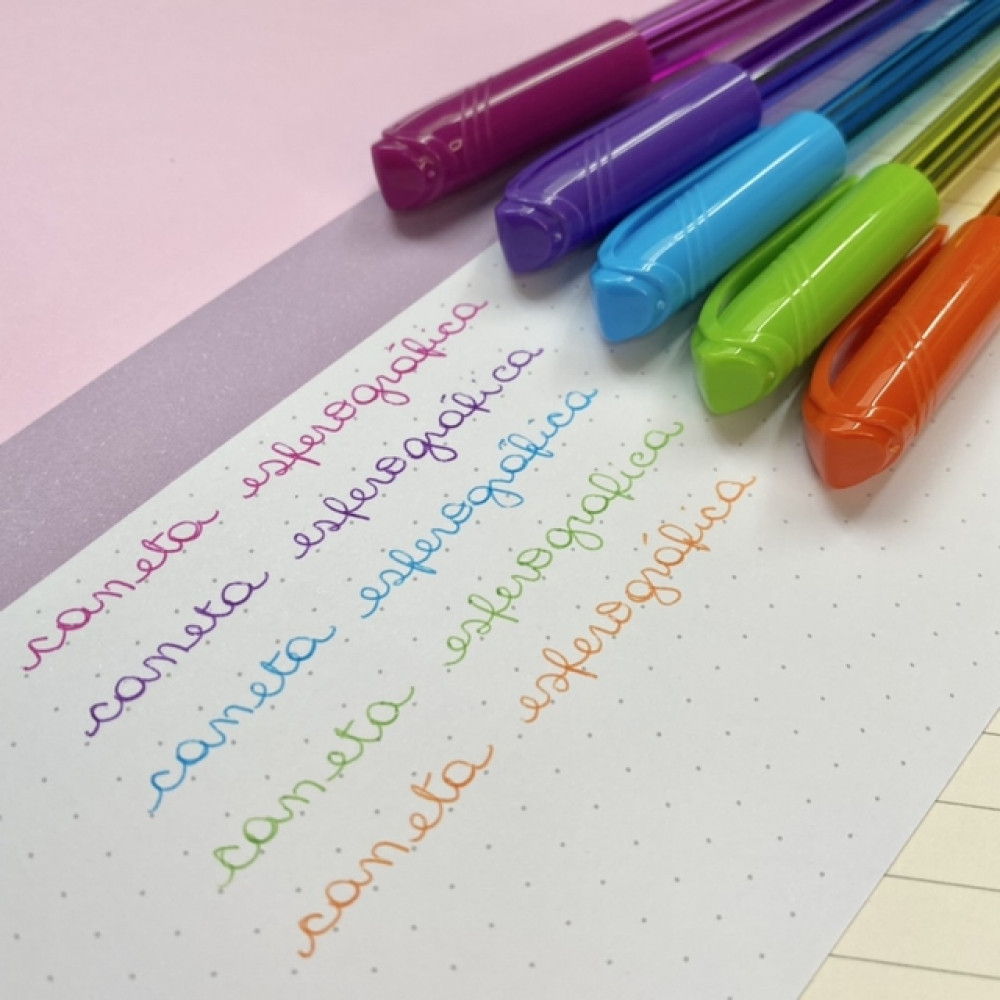 caneta esferográfica
caneta esferográfica
caneta esferográfica
caneta esferográfica
caneta esferográfica